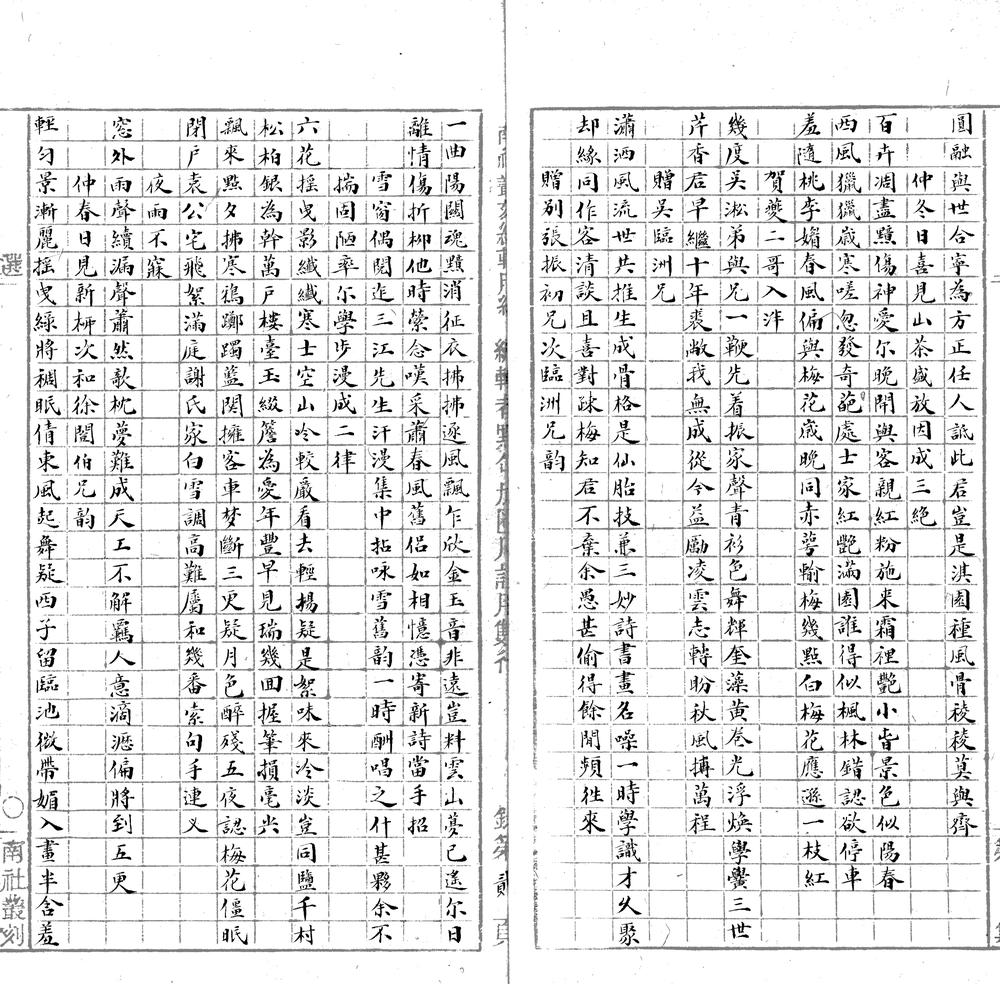 圓融與世合寧為方正任人詆此君豈是淇園種風骨稜稜莫與齊
仲冬日喜見山茶盛放因成三絕
百卉凋盡黯傷神愛尔晚開與客親紅粉施來霜裡艷小春景色似陽春
西風獵獵歲寒嗟忽發奇葩處士家紅艷滿園誰得似楓林錯認欲停車
羞隨桃李媚春風偏與梅花歲晚同赤萼輸梅幾點白梅花應遜一枝紅
賀夔二哥入泮
幾度吳淞弟與兄一鞭先着振家聲青衫色舞輝奎藻黄卷光浮煥學黌三世
芹香君早繼十年裘敝我無成從今益勵凌雲志轉盼秋風摶萬程
贈吳臨洲兄
瀟洒風流世共推生成骨格是仙胎技兼三妙詩書畫名噪一時學識才久聚
却緣同作客清談且喜對踈梅知君不棄余愚甚偷得餘閒頻徃來
贈別張振初兄次臨洲兄韵
一曲陽關魂黯消征衣拂拂逐風飄乍欣金玉音非遠豈料雲山夢已遙尔日
離情傷折柳他時縈念嘆采蕭春風舊侣如相憶憑寄新詩當手招
雪窗偶閱迮三江先生汗漫集中拈咏雪舊韵一時酬唱之什甚夥余不
揣固陋率尔學步漫成二律
六花摇曳影纖纖寒士空山冷較嚴看去輕揚疑是絮味來冷淡豈同鹽千村
松柏銀為幹萬戶樓臺玉綴簷為愛年豐早見瑞幾回握筆損毫尖
飄來點夕拂寒鴉躑躅藍関擁客車梦斷三更疑月色醉殘五夜認梅花僵眠
閉戶袁公宅飛絮滿庭謝氏家白雪調高難屬和幾番索句手連义
夜雨不寐
窓外雨聲續漏聲蕭然欹枕夢難成天工不解羈人意滴瀝偏將到五更
仲春日見新柳次和徐閶伯兄韵
輕匀景漸麗摇曳綠將稠眠倩東風起舞疑西子留臨池微帶媚入畫半含羞
選
南社叢刻